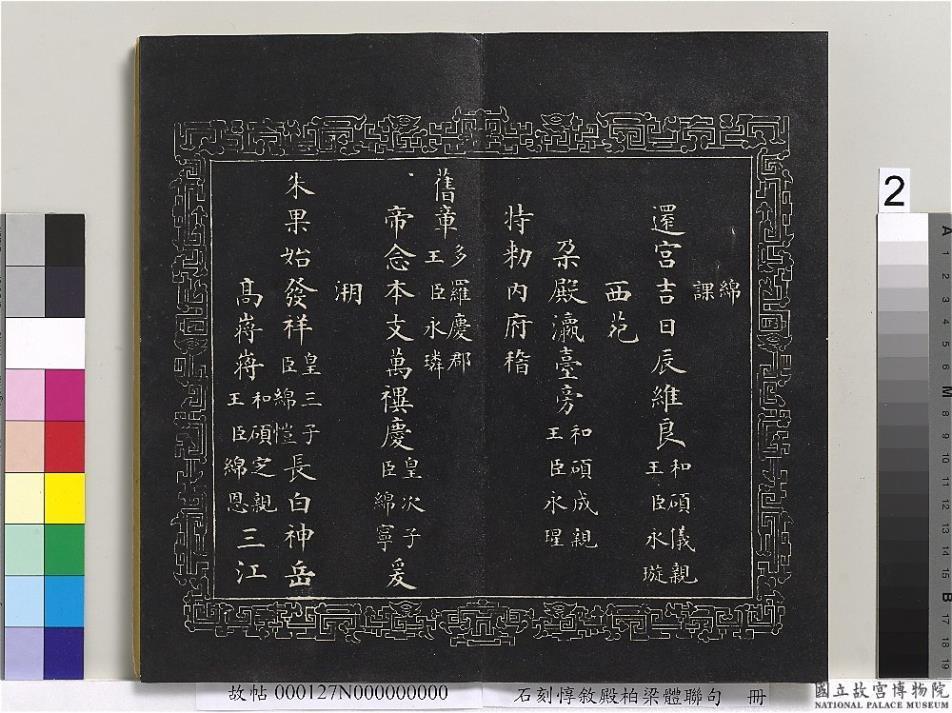 綿課
還宮吉日辰維良和碩儀親王臣永璇
西苑
朶殿瀛臺旁和碩成親王臣永瑆
特勑內府稽
舊章多羅慶郡王臣永璘
帝念本支萬禩慶皇次子臣綿寧爰
溯
朱果始發祥皇三子臣綿愷長白神岳
高嶈嶈和碩定親王臣綿恩三江
2
故帖 000127N000000000
石刻惇敘殿柏梁體聯句 冊
國立故宮博物院
NATIONAL PALACE MUSEUM
A 1 2 3 4 5 6 M 8 9 10 11 12 13 14 15 B 17 18 19